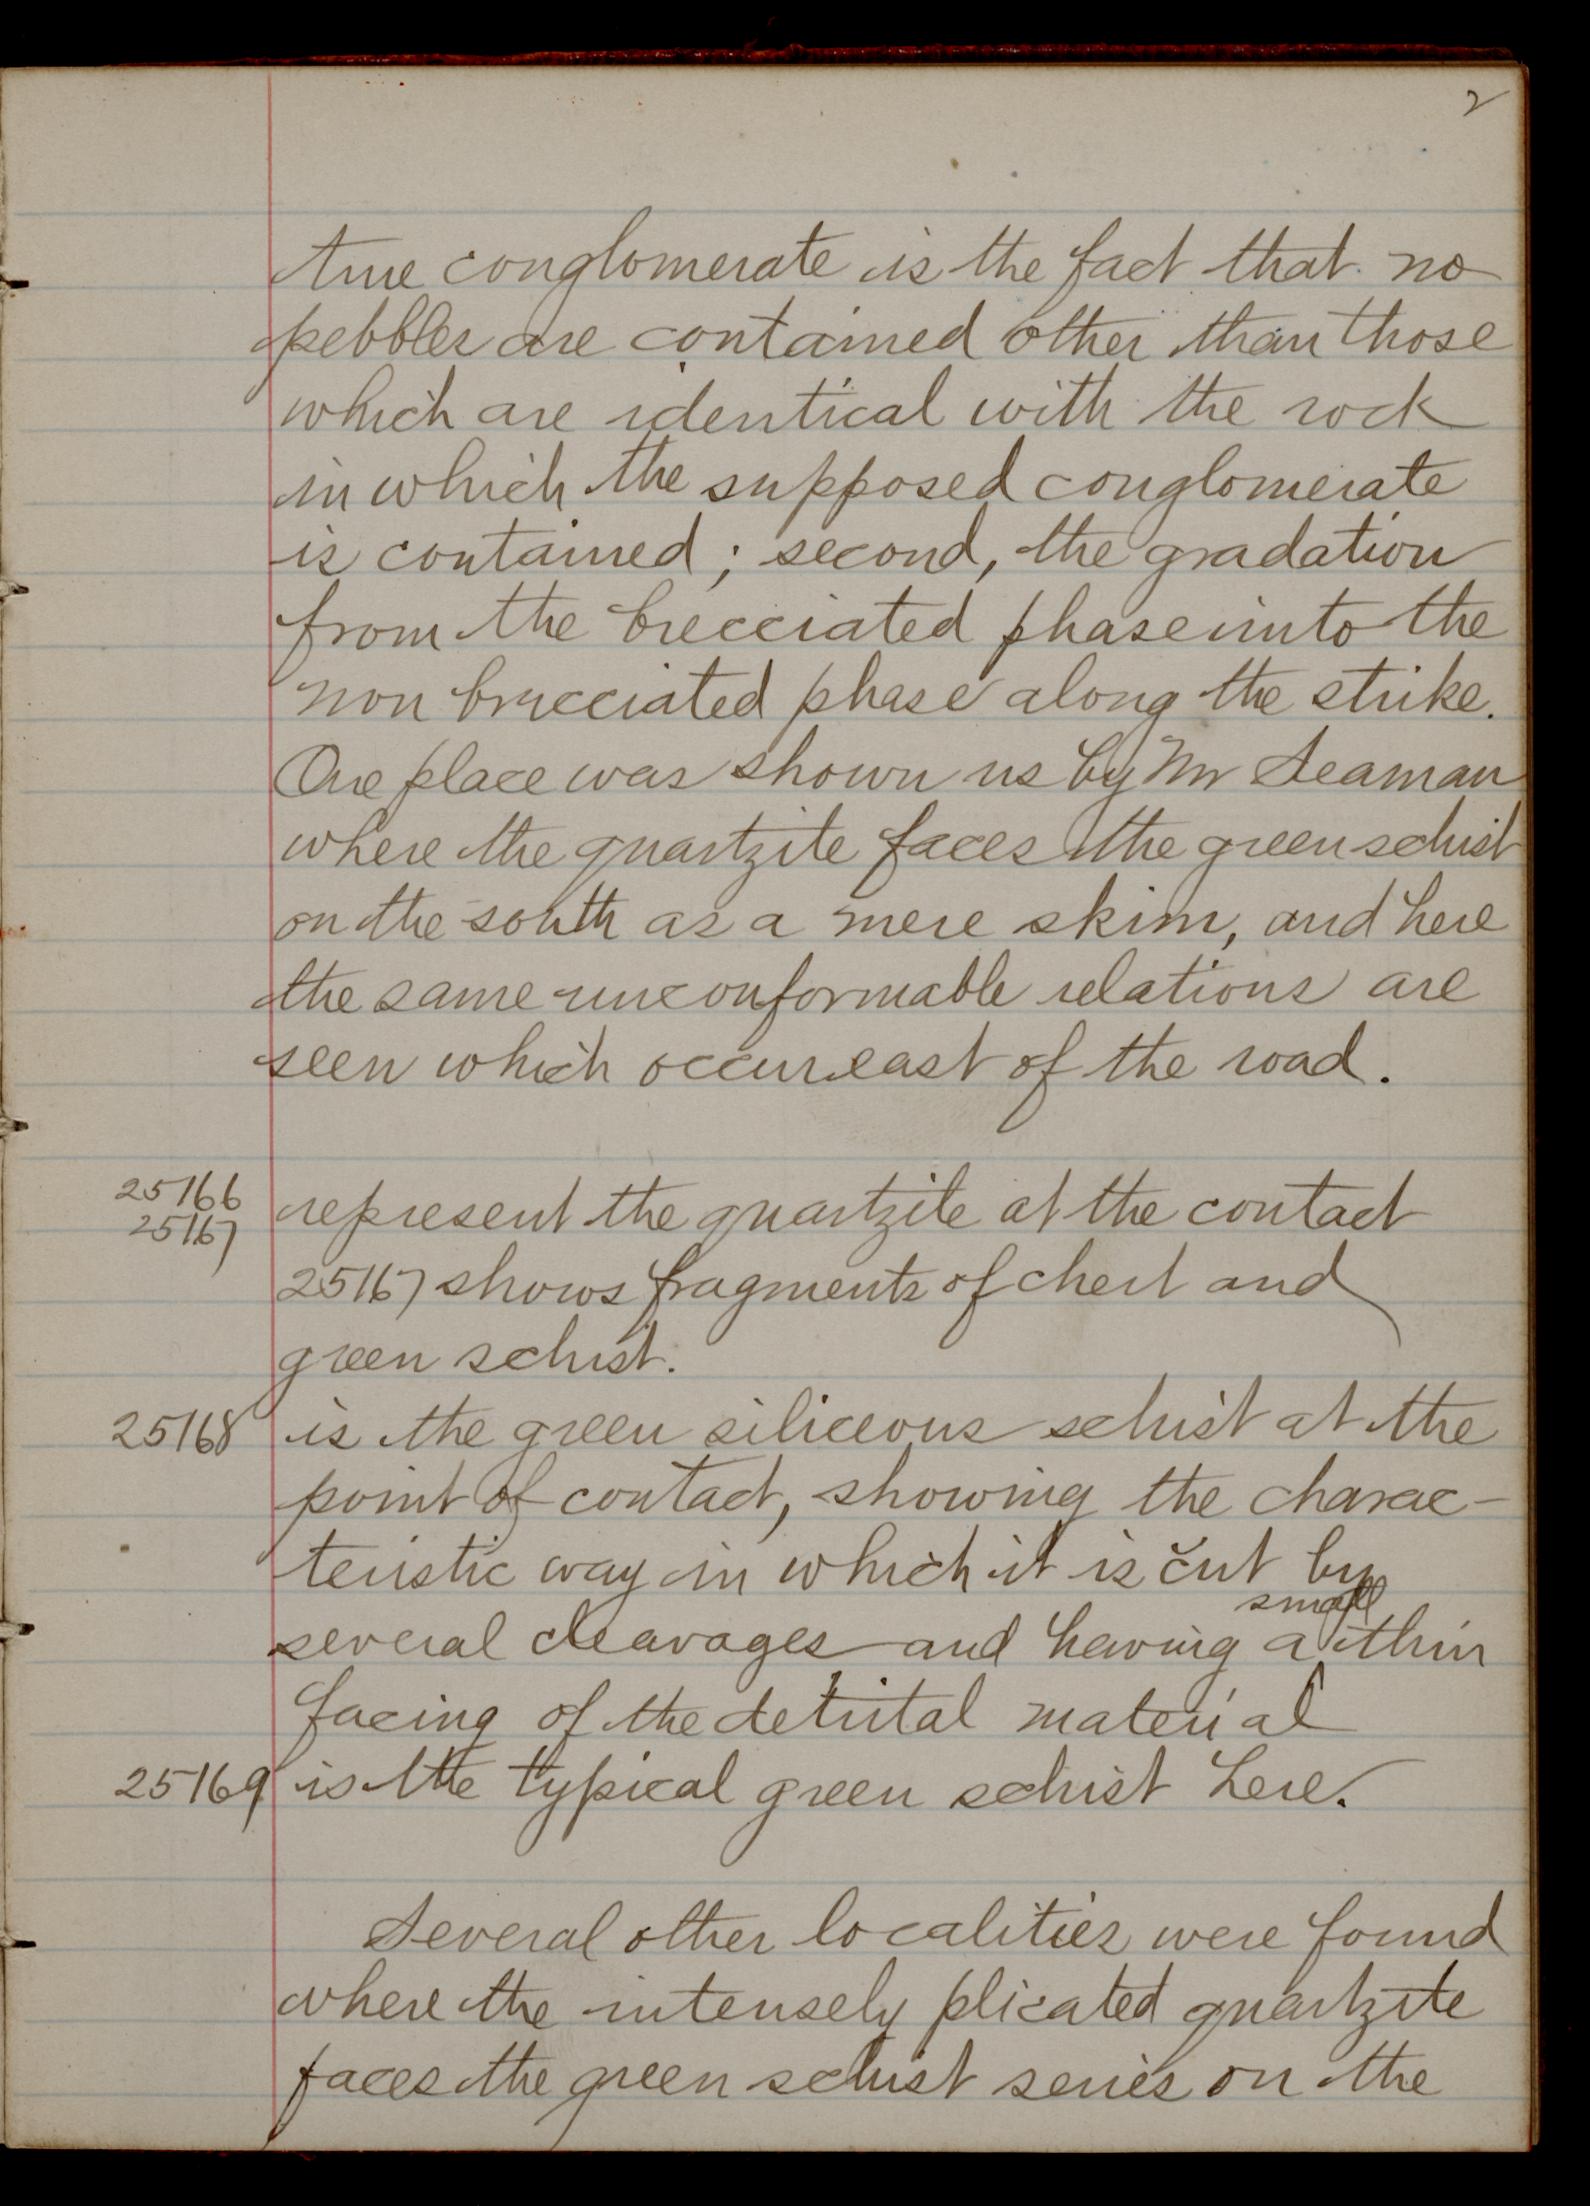 2
true conglomerate is the fact that no
pebbles are contained other than those
which are identical with the rock
in which the supposed conglomerate
is contained; second, the gradation
from the brecciated phase into the
non brecciated phase along the strike.
One place was shown us by Mr Seaman
where the quartzite faces the green schist
on the south as a mere skim, and here
the same unconformable relations are
seen which occur east of the road.
25166
25167
represent the quartzite at the contact
25167 shows fragments of chert and
green schist.
25168 is the green siliceous schist at the
point of contact, showing the charac-
teristic way in which it is cut by
small
several cleavages and having a thin
facing of the detrital material
25169 is the typical green schist here.
Several other localities were found
where the intensely plicated quartzite
faces the green schist series on the